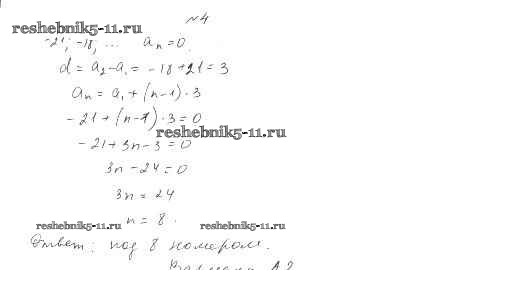 №4
reshebnik5-11.ru
-21; -18; ... aₙ = 0.
d = a₂ - a₁ = -18 + 21 = 3
aₙ = a₁ + (n-1)·3
-21 + (n-1)·3 = 0
reshebnik5-11.ru
-21 + 3n - 3 = 0
3n - 24 = 0
3n = 24
n = 8.
reshebnik5-11.ru reshebnik5-11.ru
Ответ: под 8 номером.